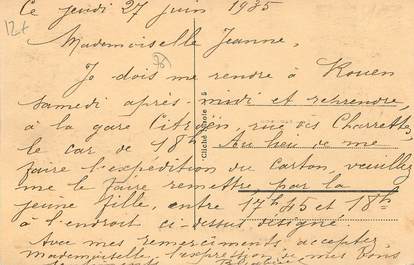 Ce jeudi 27 juin 1935
12f
Mademoiselle Jeanne,
Je dois me rendre à Rouen
samedi après-midi et reprendre,
à la gare Citroën, rue des Charrettes
le car de 18h. Au lieu de me
faire l'expédition du carton, veuillez
me le faire remettre par la
jeune fille, entre 17h45 et 18h
à l'endroit ci-dessus désigné.
Avec mes remerciements, acceptez,
Mademoiselle, l'expression de mes bons